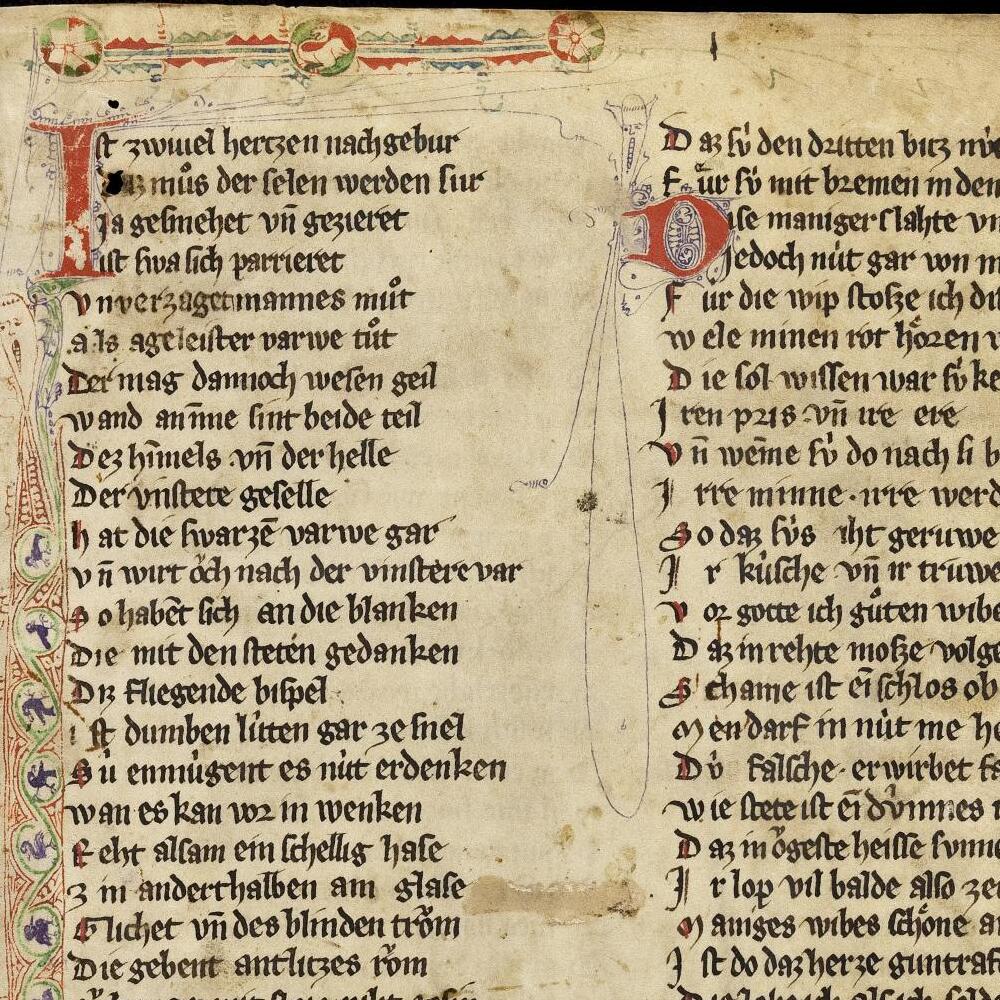 Ist zwiuel hertzen nachgebur
Daz můs der selen werden sur
Ja gesmehet vn̄ gezieret
ist swa sich parrieret
vnverzaget mannes můt
als ageleister varwe tůt
Der mag dannoch wesen geil
wand an im̄e sint beide teil
Dez him̄els vn̄ der helle
Der vnstete geselle
hat die swarzē varwe gar
vn̄ wirt ǒch nach der vinstere var
so habēt sich an die blanken
Die mit den steten gedanken
Diz fliegende bispel
ist dumben lúten gar ze snel
Sú enmúgent es nút erdenken
wan es kan vor in wenken
Reht alsam ein schellig hase
zin anderthalben am glase
Glichet vn̄ des blinden trǒm
Die gebent antlitzes rǒm
Daz sv́ den dritten biz
Fúr sv́ mit bremen in den
Dise maniger slahte
Jedoch nút gar von
Fúr die wip stosze ich
wele minen rot hǒren
Die sol wissen war sv́
Iren pris vn̄ ire ere
vn̄ wem̄e sv́ do nach si
Irre minne . irre
So daz sv́s iht geruwe
Ir kúsche vn̄ ir truwe
vor gotte ich gůten
Daz in rehte mosze
Schame ist eī schlos ob
Men darf in nút me
Dv́ falsche . erwirbet
wie stete ist eī dv́nnes
Daz in ǒgeste heisse
Ir lop vil balde also
Maniges wibes schǒne
Ist do daz herze